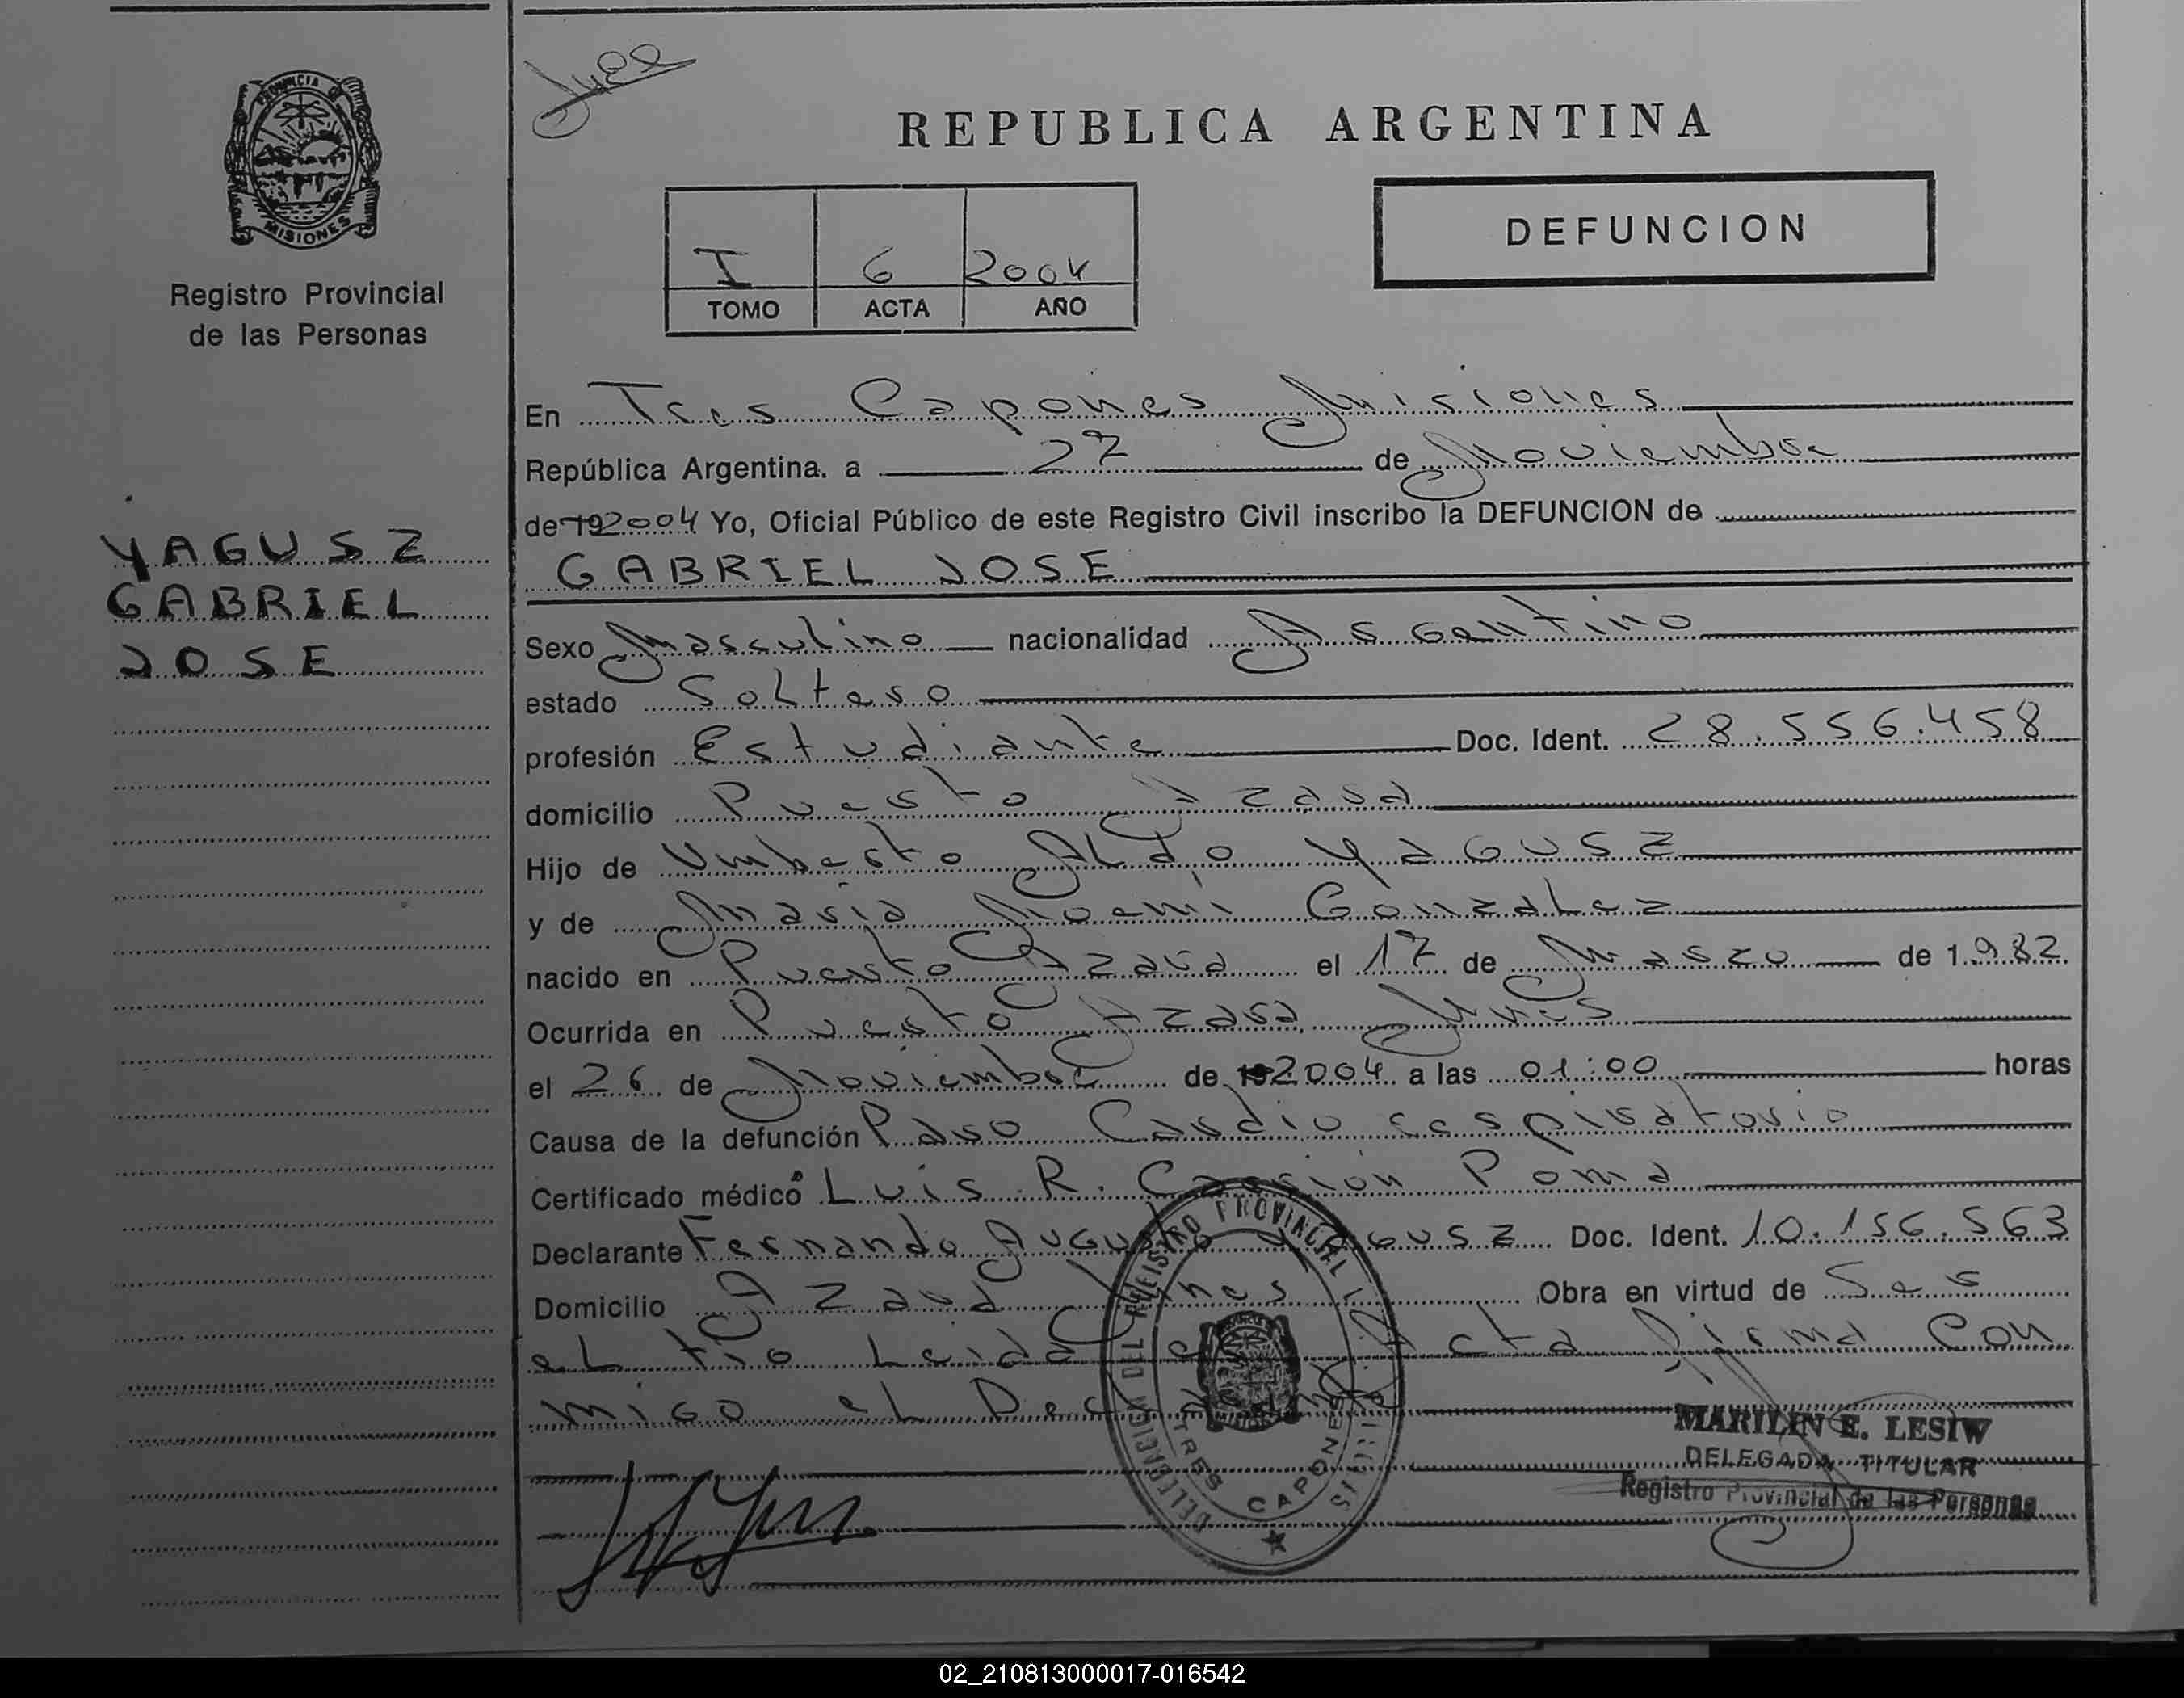 PROVINCIA DE
MISIONES
Registro Provincial
de las Personas
YAGUSZ
GABRIEL
JOSE
REPUBLICA ARGENTINA
I 6 2004
TOMO ACTA AÑO
DEFUNCION
En Tres Capones Misiones
República Argentina. a 27 de Noviembre
de 192004 Yo, Oficial Público de este Registro Civil inscribo la DEFUNCION de
GABRIEL JOSE
Sexo Masculino nacionalidad Argentino
estado Soltero
profesión Estudiante Doc. Ident. 28.556.458
domicilio Puesto Azara
Hijo de Umberto Aldo Yagusz
y de Maria Noemi Gonzalez
nacido en Puesto Azara el 17 de Marzo de 1.982.
Ocurrida en Puesto Azara Mnes
el 26 de Noviembre de 192004 a las 01:00 horas
Causa de la defunción Paro Cardio respiratorio
Certificado médico Luis R. Carrion Poma
Declarante Fernando Augusto Yagusz Doc. Ident. 10.156.563
Domicilio Azara Mnes Obra en virtud de Ser
el tio Leida el Acta firma Con
migo el Declarante
DELEGACION DEL REGISTRO PROVINCIAL
TRES CAPONES
MISIONES
MARILIN E. LESIW
DELEGADA TITULAR
Registro Provincial de las Personas
02_210813000017-016542